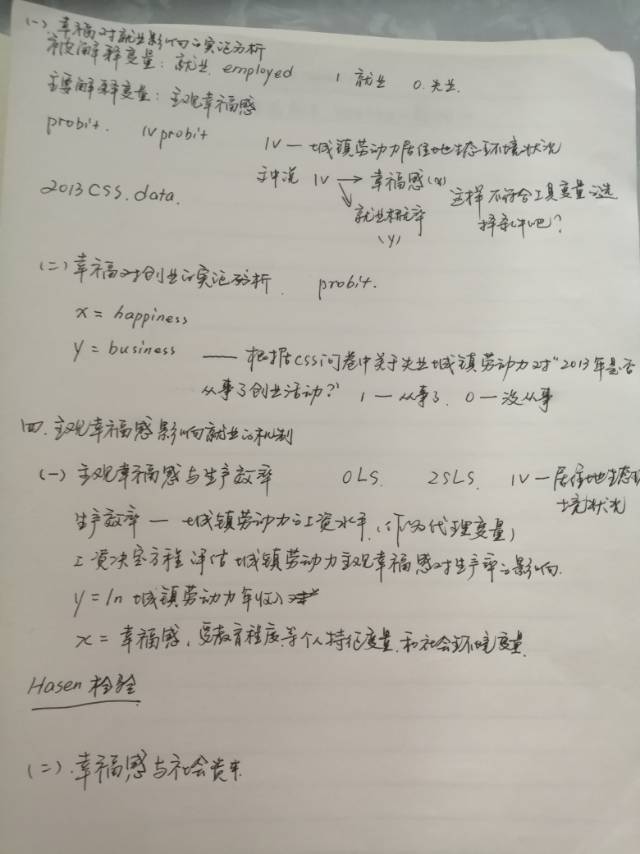 (一) 幸福对就业影响的实证分析
被解释变量：就业. employed 1 就业 0.失业.
主要解释变量：主观幸福感
probit. IV probit IV — 城镇劳动力居住地生态环境状况
文中说 IV → 幸福感(x) 这样不符合工具变量选
2013 CSS. data. 就业概率 择条件吧？
(y)
(二) 幸福对创业的实证分析. probit.
x = happiness
y = business —— 根据CSS问卷中关于失业城镇劳动力对"2013年是否
从事了创业活动?" 1 — 从事了. 0 — 没从事
四. 主观幸福感影响就业的机制
(一) 主观幸福感与生产效率 OLS. 2SLS. IV — 居住地生态环
境状况
生产效率 — 城镇劳动力工资水平. (作为代理变量)
工资决定方程评估城镇劳动力主观幸福感对生产率之影响.
y = ln 城镇劳动力年收入
x = 幸福感, 受教育程度等个人特征变量.和社会环境变量.
Hasen 检验
(二). 幸福感与社会资本